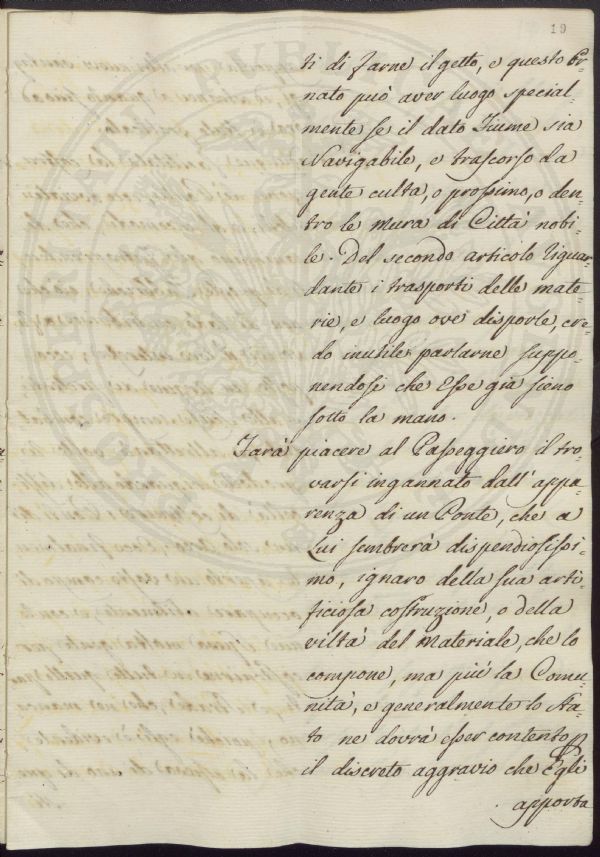 19
ti di farne il getto, e questo Or-
nato può aver luogo special-
mente se il dato Fiume sia
Navigabile, e trascorso da
gente culta, o prossimo, o den-
tro le mura di Città nobi-
le. Del secondo articolo riguar-
dante i trasporti delle mate-
rie, e luogo ove disporle, cre-
do inutile parlarne suppo-
nendosi che Esse già sieno
sotto la mano.
Farà piacere al Passeggiero il tro-
varsi ingannato dall' appa-
renza di un Ponte, che a
Lui sembrerà dispendiosissi-
mo, ignaro della sua arti-
ficiosa costruzione, o della
viltà del Materiale, che lo
compone, ma più la Comu-
nità, e generalmente lo Sta-
to ne dovrà esser contento
il discreto aggravio che Egli
apporta